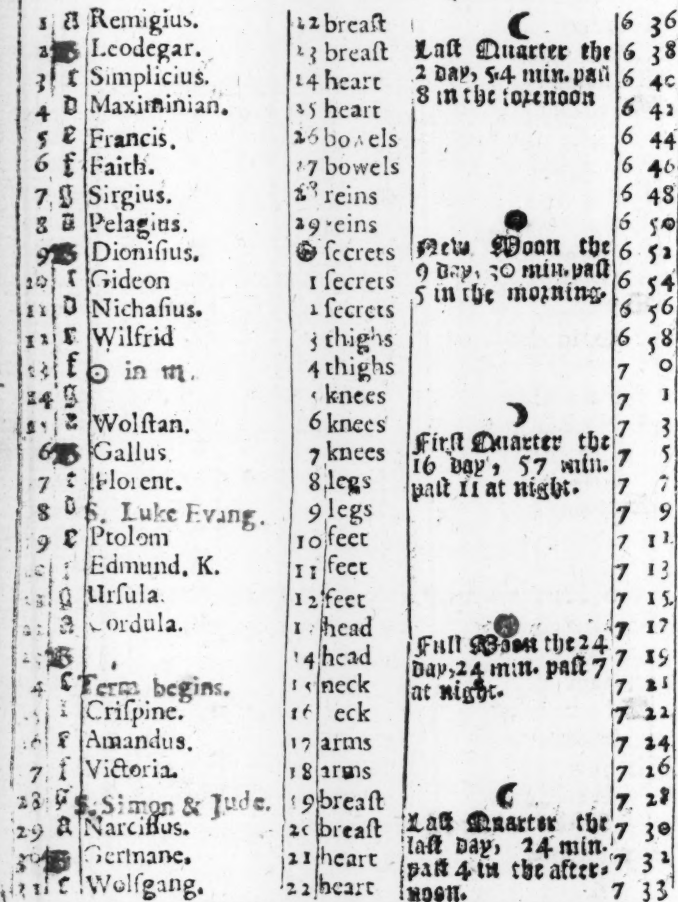 1 a Remigius. 22 breaſt 6 36
2 B Leodegar. 23 breaſt Laſt Quarter the 6 38
3 c Simplicius. 24 heart 2 day, 54 min. paſt 6 40
4 D Maximinian. 25 heart 8 in the forenoon 6 42
5 e Francis. 26 bowels 6 44
6 f Faith. 27 bowels 6 46
7 g Sirgius. 28 reins 6 48
8 a Pelagius. 29 reins 6 50
9 B Dioniſius. ſecrets New Moon the 6 52
10 c Gideon 1 ſecrets 9 day, 30 min. paſt 6 54
11 D Nichaſius. 2 ſecrets 5 in the morning. 6 56
12 e Wilfrid 3 thighs 6 58
13 f ☉ in ♏. 4 thighs 7 0
14 g 5 knees 7 1
15 a Wolſtan. 6 knees 7 3
6 B Gallus 7 knees Firſt Quarter the 7 5
7 c Florent. 8 legs 16 day, 57 min. 7 7
8 D S. Luke Evang. 9 legs paſt 11 at night. 7 9
9 e Ptolom 10 feet 7 11
f Edmund, K. 11 feet 7 13
g Urſula. 12 feet 7 15
a Cordula. 13 head 7 17
B 14 head Full Moon the 24 7 19
4 c Term begins. 15 neck day, 24 min. paſt 7 7 21
Criſpine. 16 eck at night. 7 22
6 e Amandus. 17 arms 7 24
7 f Victoria. 18 arms 7 26
28 g S. Simon & Jude. 19 breaſt 7 28
29 a Narciſſus. 20 breaſt Laſt Quarter the 7 30
30 B Germane. 21 heart laſt day, 24 min. 7 32
31 c Wolfgang. 22 heart paſt 4 in the after- 7 33
noon.